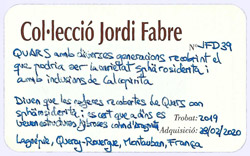 Col·lecció Jordi Fabre
Nº JFD39
QUARS amb diverses generacions recobrint el
que podria ser la varietat sphärosiderita i
amb inclusions de Calcopirita
Diuen que les vegades recobertes de Quars son
sphärosiderita; es cert que a dins es
veuen estructures fibroses
Trobat: 2019
Adquisició: 28/02/2020
Lagarpie, Quercy-Rouergue, Montauban, França